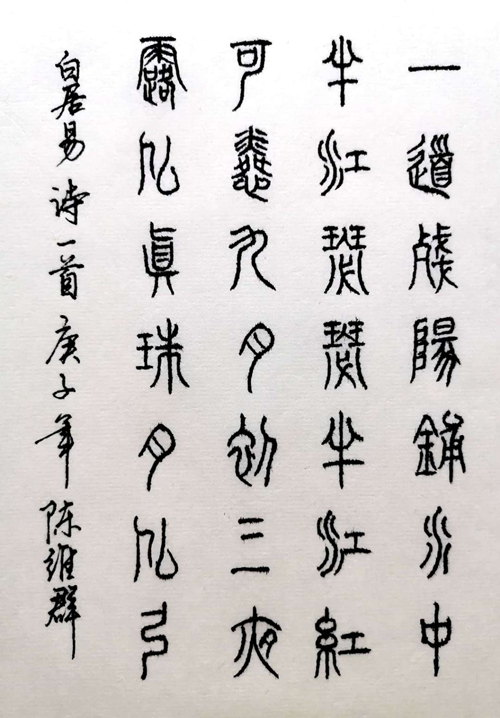 一道殘陽鋪水中
半江瑟瑟半江紅
可憐九月初三夜
露似眞珠月似弓
白居易诗一首庚子年陈维群